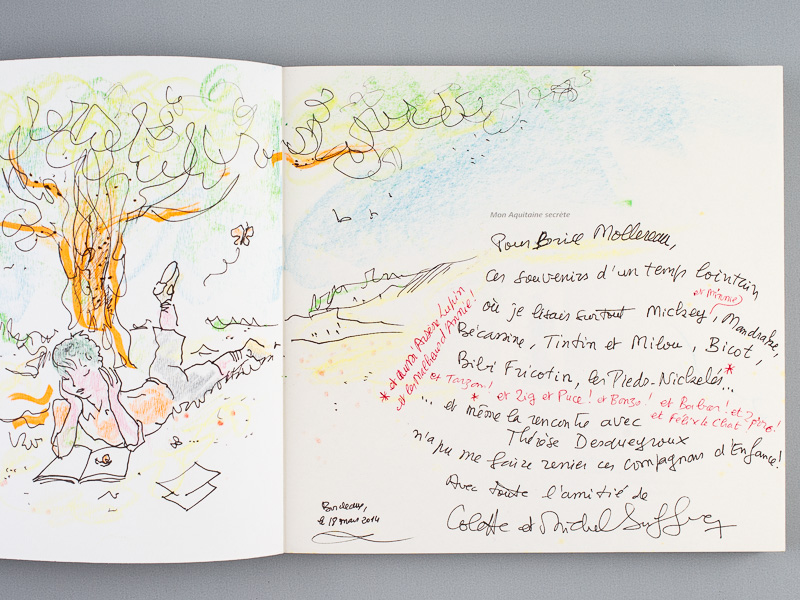 Mon Aquitaine secrète
Pour Brice Mollereau,
ces souvenirs d'un temps lointain
et Minnie!
où je lisais surtout Mickey, Mandrake,
Bécassine, Tintin et Milou, Bicot,
Bibi Fricotin, les Pieds-Nickelés...*
* et aussi Arsène Lupin
et les malheurs d'Annie!
et Tarzan!
* et Zig et Puce! et Bonzo! et Barbar! et
et Félix le Chat
... et même la rencontre avec
Thérèse Desqueyroux
n'a pu me faire renier ces compagnons d'Enfance!
Avec toute l'amitié de
Colette et Michel Suffran
Bordeaux,
le 18 mars 2014